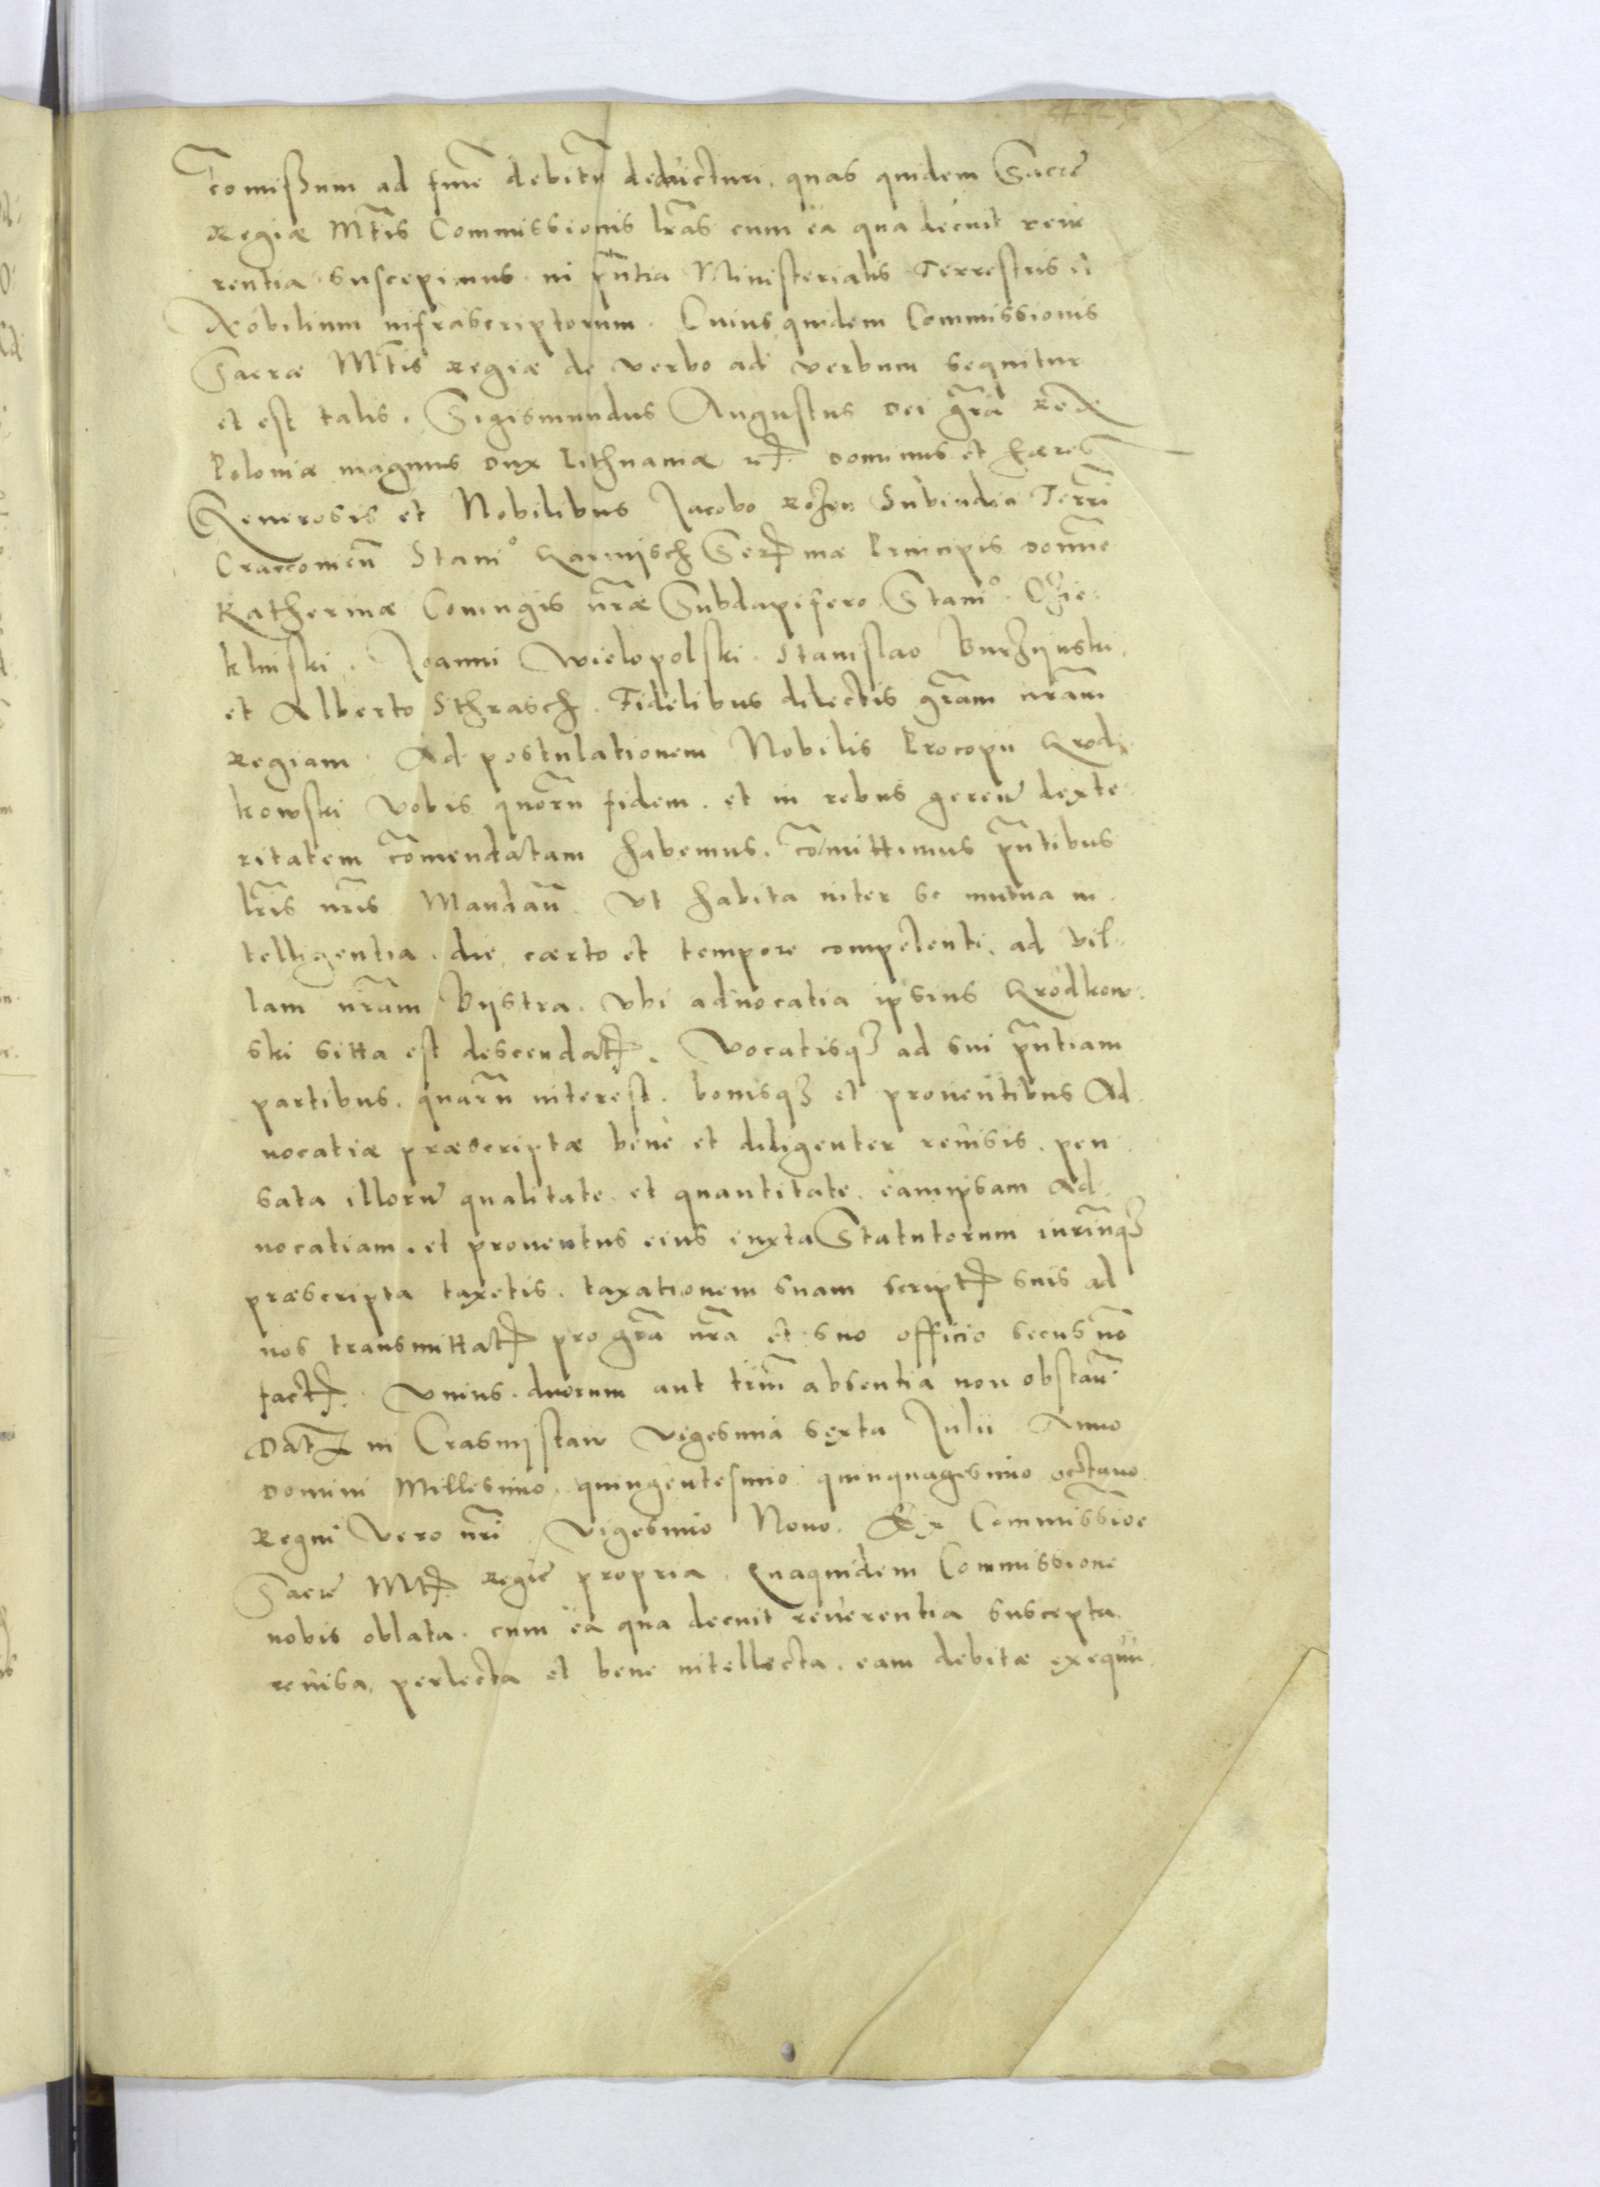 Comissum ad finē debitū deducturi, quas quidem Sacrę
Regiæ Mtis Commissionis lrās cum ea qua decuit reue
rentia suscepimus in pñtia Ministerialis Terrestris et
Nobilium infrascriptorum. Cuius quidem Commissionis
Sacræ Mtis Regiæ de verbo ad verbum sequitur
et est talis. Sigismundus Augustus Dei grā Rex
Poloniæ magnus Dux Lithuaniæ etc. Dominus et Hæres
Generosis et Nobilibus Jacobo Rozen Subiudici Terrī
Craccovieñ Stanio Karnisch Serenmæ Principis Domnæ
Katherinæ Coniugis nræ Subdapifero Stanio
klinski. Joanni Wielopolski. Stanislao Burzynski,
et Alberto Sthrasch. Fidelibus dilectis grām nrām
Regiam. Ad postulationem Nobilis Procopii Grod
kowski vobis quorū fidem. et in rebus gereñ dexte
ritatem cōmendatam habemus. cōmittimus pñtibus
lrīs nrīs Mandañ. Vt habita inter se mutua in
telligentia. die cærto et tempore competenti. ad vil
lam nrām Bystra. vbi aduocatia ipsius Grodkow
ski sitta est descendatis. Vocatisq3 ad sui pñtiam
partibus. quarū interest. bonisq3 et prouentibus Ad
uocatiæ præscriptæ bene et diligenter reuisis. pen
sata illorū qualitate et quantitate. eamipsam Ad
uocatiam. et prouentus eius iuxta Statutorum iuriumq3
præscripta taxetis. taxationem suam scriptis suis ad
nos transmittatis pro grā nrā et suo officio secus nō
factis. Vnius. duorum aut triū absentia non obstañ
Datum in Crasnystaw Vigesima sexta Julii Anno
Domini Millesimo. quingentesimo quinquagesimo octauo.
Regni Vero nrī Vigesimo Nono. Ex Commissiōe
Sacræ Mtis Regię propria. Quaquidem Commissione
nobis oblata. cum ea qua decuit reuerentia suscepta.
reuisa, perlecta et bene intellecta. eam debitæ exequu